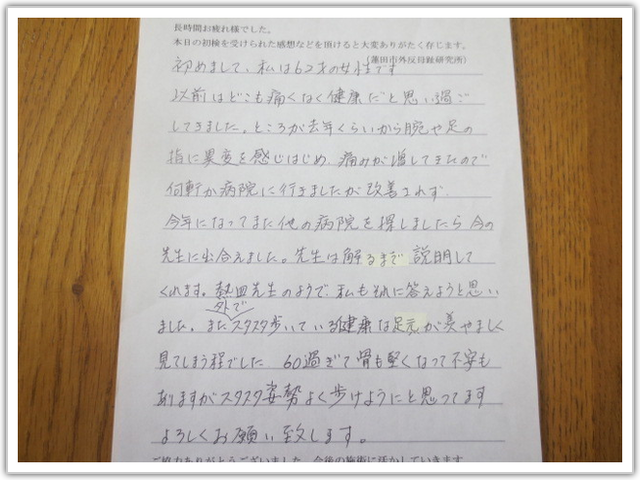 長時間お疲れ様でした。
本日の初検を受けられた感想などを頂けると大変ありがたく存じます。
(蓮田市外反母趾研究所)
初めまして、私は62才の女性です
以前はどこも痛くなく健康だと思い過ご
してきました。ところが去年くらいから腕や足の
指に異変を感じはじめ、痛みが増してきたので
何軒か病院に行きましたが改善されず
今年になってまた他の病院を探しましたら今の
先生に出合えました。先生は解るまで説明して
くれます。熱血先生のようで、私もそれに答えようと思い
外で
ました。またスタスタ歩いている健康な足元が羨やましく
見てしまう程でした 60過ぎて骨も堅くなって不安も
ありますがスタスタ姿勢よく歩けようにと思ってます
よろしくお願い致します。
ご協力ありがとうございました。今後の施術に活かしていきます。